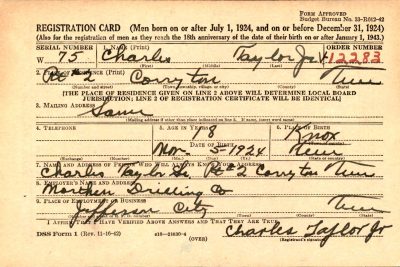 FORM APPROVED
Budget Bureau No. 33-R012-42
REGISTRATION CARD (Men born on or after July 1, 1924, and on or before December 31, 1924)
(Also for the registration of men as they reach the 18th anniversary of the date of their birth on or after January 1, 1943.)
SERIAL NUMBER 1. NAME (Print) ORDER NUMBER
W 75 Charles Taylor Jr. 12283
(First) (Middle) (Last)
2. PLACE OF RESIDENCE (Print)
Rt #2 Corryton Tenn
(Number and street) (Town, township, village, or city) (County) (State)
[THE PLACE OF RESIDENCE GIVEN ON LINE 2 ABOVE WILL DETERMINE LOCAL BOARD
JURISDICTION; LINE 2 OF REGISTRATION CERTIFICATE WILL BE IDENTICAL]
3. MAILING ADDRESS
Same
[Mailing address if other than place indicated on line 2. If same, insert word same]
4. TELEPHONE 5. AGE IN YEARS 6. PLACE OF BIRTH
18 Knox
DATE OF BIRTH
Nov 5 1924 Tenn
(Exchange) (Number) (Mo.) (Day) (Yr.) (State or country)
7. NAME AND ADDRESS OF PERSON WHO WILL ALWAYS KNOW YOUR ADDRESS
Charles Taylor Sr. Rt #2 Corryton Tenn
8. EMPLOYER'S NAME AND ADDRESS
Drilling Co
9. PLACE OF EMPLOYMENT OR BUSINESS
Jefferson City Tenn
(Number and street or R. F. D. number) (Town) (County) (State)
I AFFIRM THAT I HAVE VERIFIED ABOVE ANSWERS AND THAT THEY ARE TRUE.
DSS Form 1 (Rev. 11-16-42) (OVER) Charles Taylor Jr
(Registrant's signature)